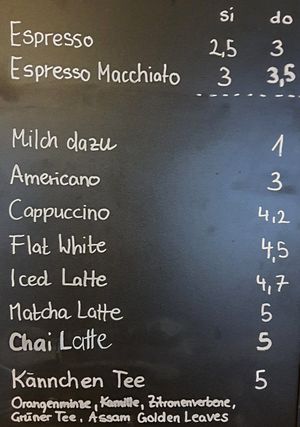 si do
Espresso 2,5 3
Espresso Macchiato 3 3,5
Milch dazu 1
Americano 3
Cappuccino 4,2
Flat White 4,5
Iced Latte 4,7
Matcha Latte 5
Chai Latte 5
Kännchen Tee 5
Orangenminze, Kamille, Zitronenverbene,
Grüner Tee, Assam Golden Leaves